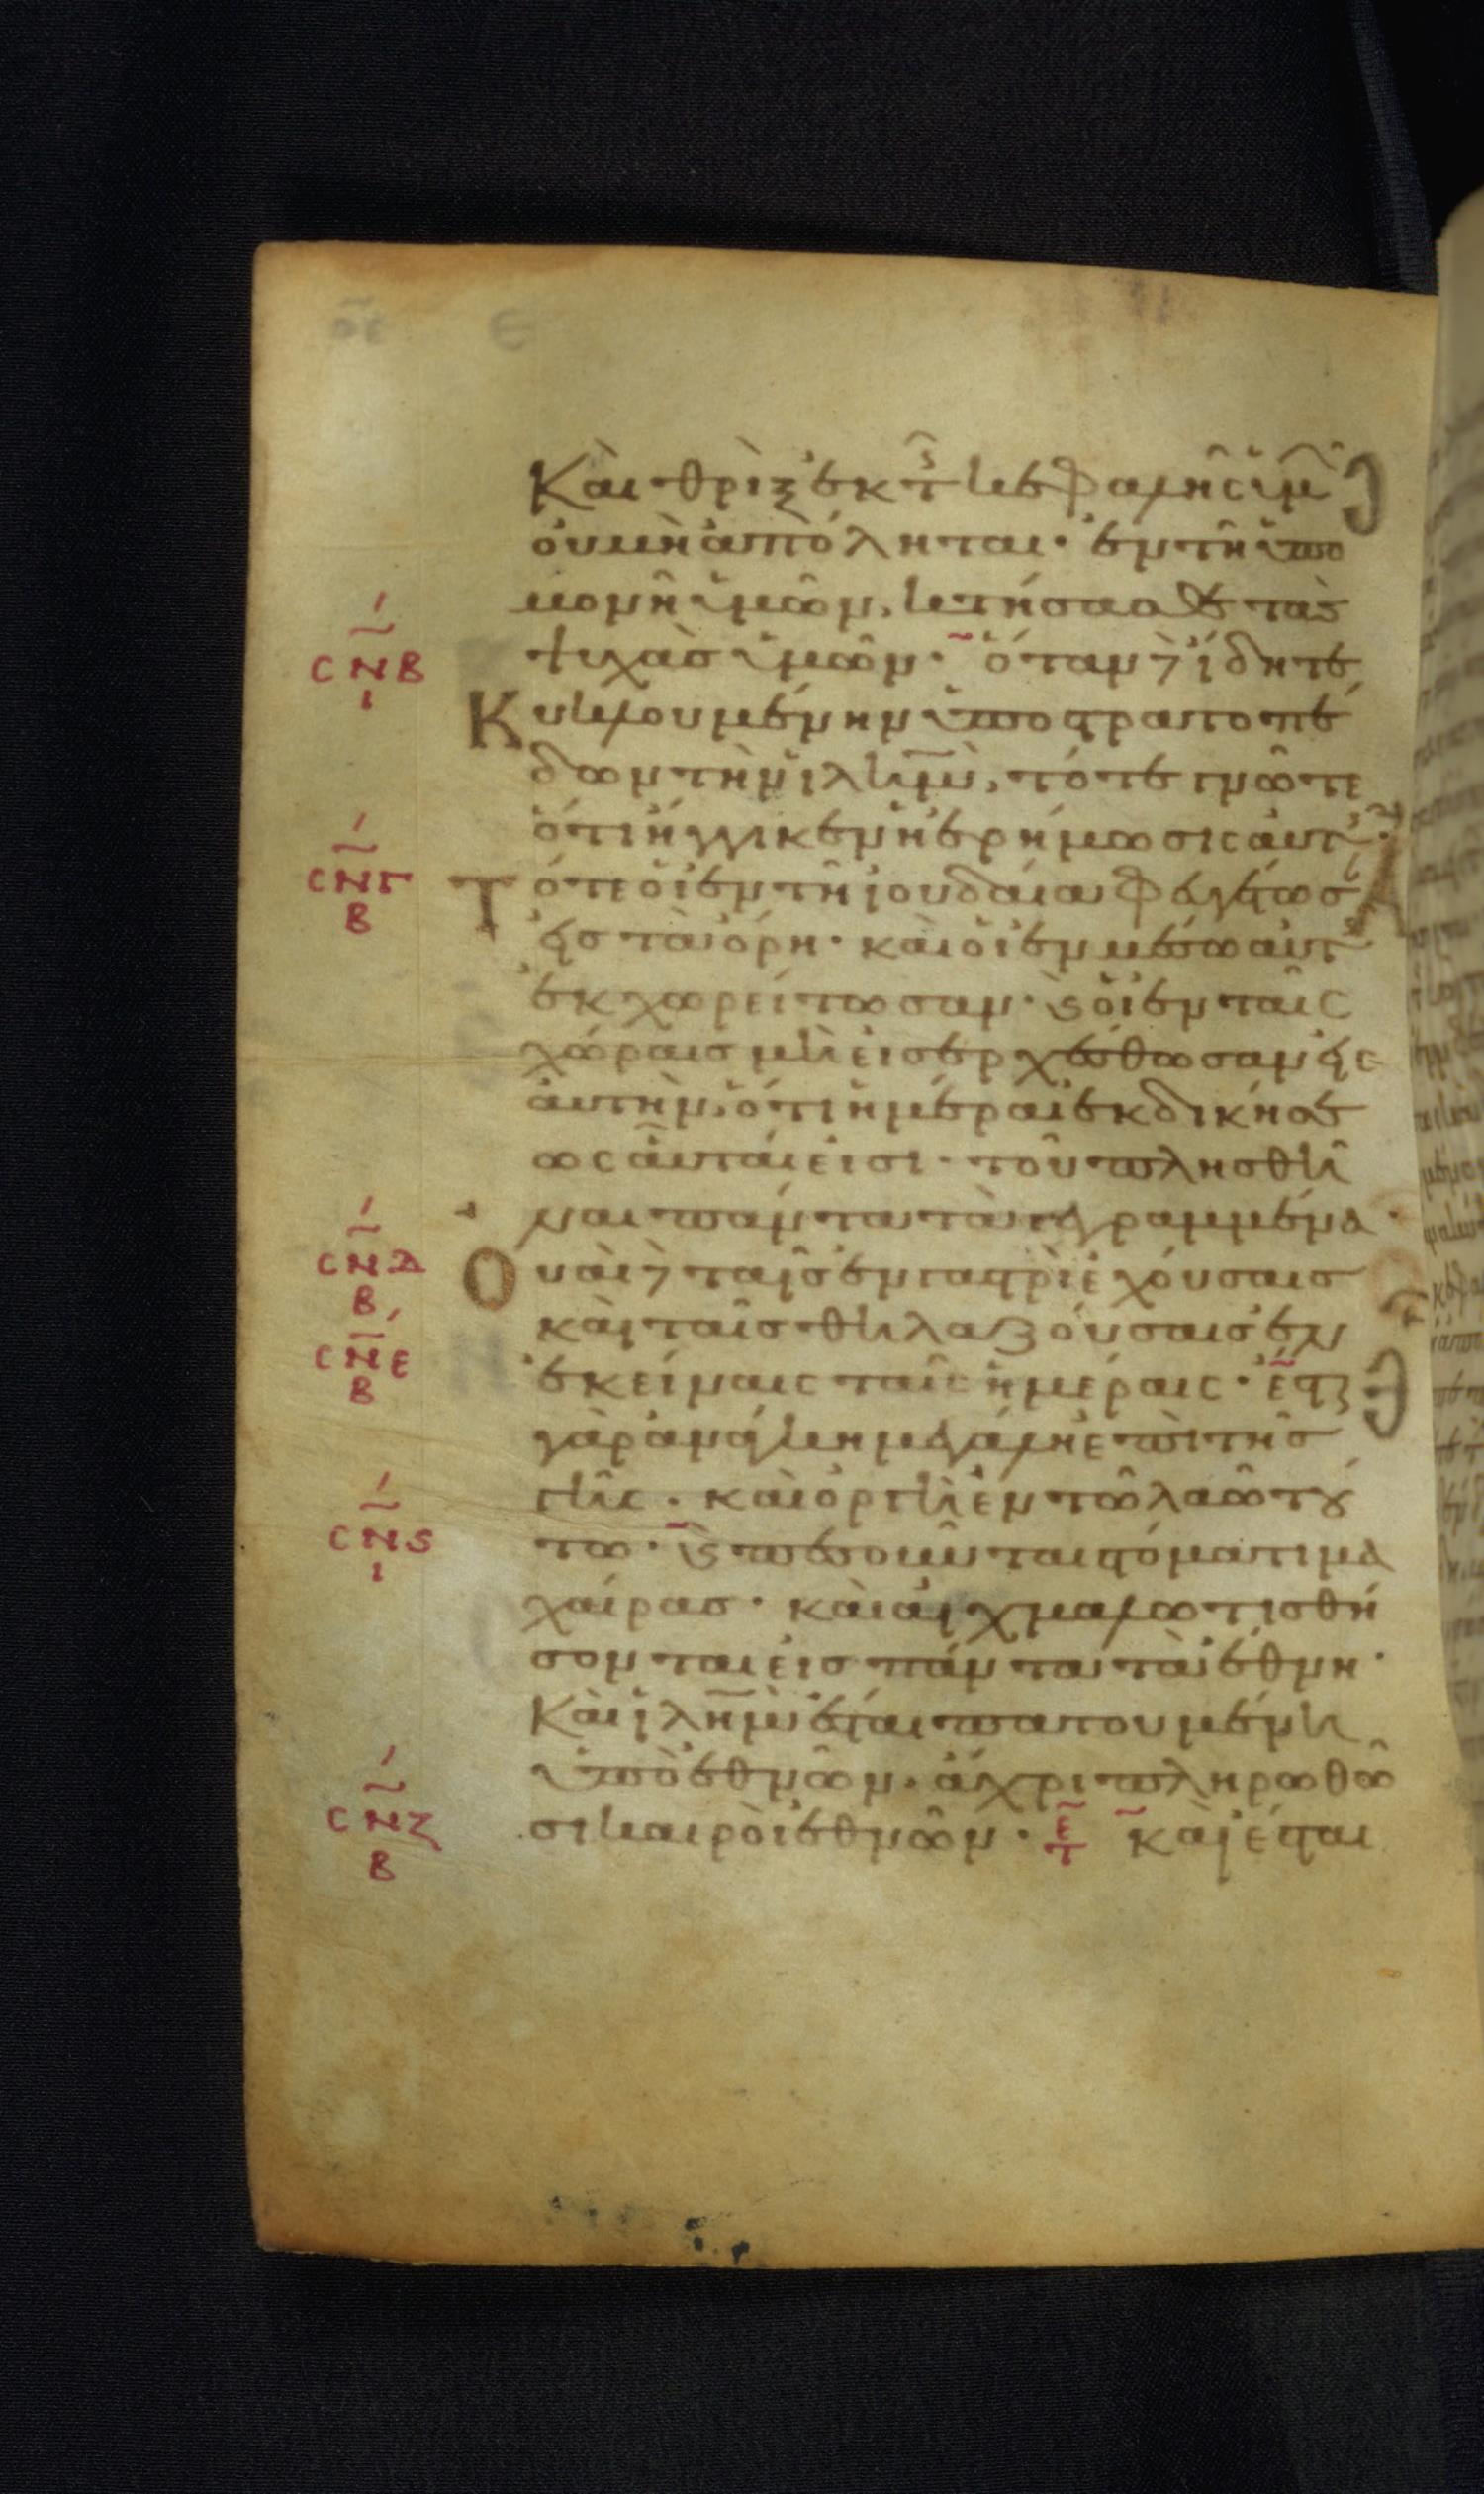 Καὶ θρὶξ ἐκ τ̑ς κεφαλῆς ὑμ̑
οὐ μὴ ἀπόληται· ἐν τῆ ὑπο
μονῆ ὑμῶν, κτήσασθε τὰς
ψυχὰς ὑμῶν· ὅταν δὲ ἴδητε
Κυκλουμένην ὑπὸ στρατοπέ
δων τὴν ἱλημ̄, τότε γνῶτε
ὅτι ἤγγικεν ἡ ἐρήμωσις αὐτ̑
Τότε οἱ ἐν τῆ ἰουδαία φευγέτωσ
εἰς τὰ ὄρη· καὶ οἱ ἐν μέσω αὐτ̑
ἐκχωρείτωσαν· ϗ οἱ ἐν ταῖς
χώραις μὴ εἰσερχέσθωσαν εἰς
αὐτὴν, ὅτι ἡμέραι ἐκδικήσε
ως αὗται εἰσι· τοῦ πλησθῆ
ναι πάντα τὰ γεγραμμένα·
Οὐαὶ δὲ ταῖς ἐν γαστρὶ ἐχούσαις
καὶ ταῖς θηλαζούσαις ἐν
ἐκείναις ταῖς ἡμέραις· ἔσται
γὰρ ἀνάγκη μεγάλη ἐπὶ τῆς
γῆς· καὶ ὀργὴ ἐν τῶ λαῶ τȣ́
τω· ϗ πεσοῦνται στόματι μα
χαίρας· καὶ αἰχμαλωτισθή
σονται εἰς πάντα τὰ ἔθνη·
Καὶ ἱλημ̄ ἔσται πατουμένη
ὑπὸ ἐθνῶν· ἄχρι πληρωθῶ
σι καιροὶ ἐθνῶν· ε̃τ καὶ ἔσται
CΝΒ
Ι
CΝΓ
Β
CΝΔ
Β
CΝΕ
Β
CΝϚ
Ι
CΝΖ
Β